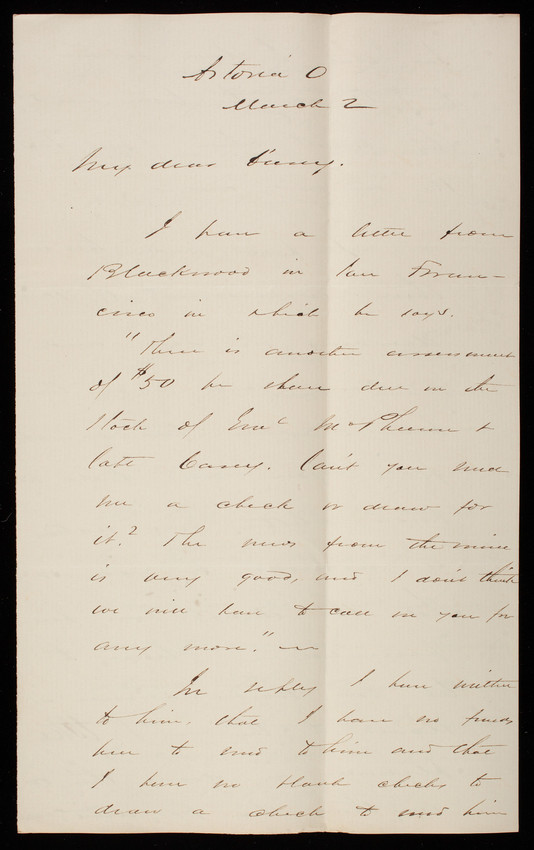 Astoria O
March 2
My dear Casey.
I have a letter from
Blackwood in San Fran-
cisco in which he says.
"There is another assessment
of $50 per share due on the
stock of Genl McPherson &
Capt Casey. Can't you send
me a check or draw for
it? The news from the mine
is very good, and I don't think
we will have to call on you for
any more."
In reply I have written
to him, that I have no funds
here to send to him and that
I have no blank checks to
draw a check to send him